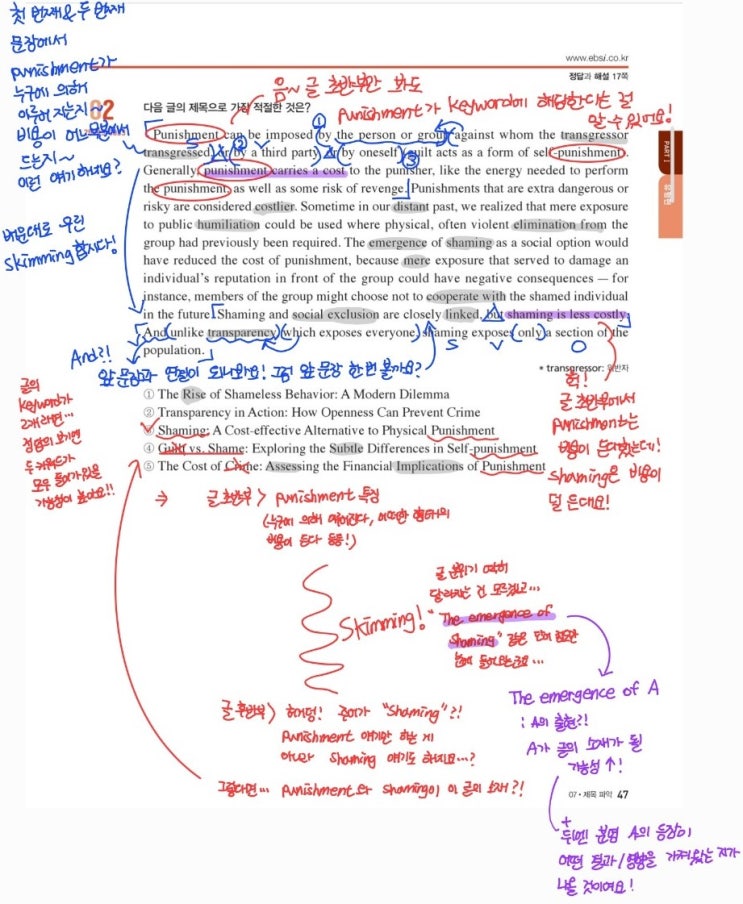 첫 번째&두 번째
문장에서
punishment가
누구에 의해
이루어지는지~
비용이 어느 부분에서
드는지~
이런 얘기 하네요?
배운대로 우린
skimming 합시다!
www.ebsi.co.kr
정답과 해설 17쪽
음~ 글 초반부만 봐도
punishment가 keyword에 해당한다는 걸
알 수 있어요!
02 다음 글의 제목으로 가장 적절한 것은?
①
Punishment can be imposed by the person or group against whom the transgressor
S ② V ③
transgressed, or by a third party, or by oneself; guilt acts as a form of self-punishment.
Generally, punishment carries a cost to the punisher, like the energy needed to perform
the punishment, as well as some risk of revenge. Punishments that are extra dangerous or
risky are considered costlier. Sometime in our distant past, we realized that mere exposure
to public humiliation could be used where physical, often violent elimination from the
group had previously been required. The emergence of shaming as a social option would
have reduced the cost of punishment, because mere exposure that served to damage an
individual's reputation in front of the group could have negative consequences — for
instance, members of the group might choose not to cooperate with the shamed individual
in the future. Shaming and social exclusion are closely linked, but shaming is less costly.
And unlike transparency (which exposes everyone) shaming exposes only a section of the
S V O
population.
And?!
앞 문장과 연결이 되나봐요! 그럼 앞 문장 한번 볼까요?
* transgressor: 위반자
PART I
유형편
① The Rise of Shameless Behavior: A Modern Dilemma
② Transparency in Action: How Openness Can Prevent Crime
③ Shaming: A Cost-effective Alternative to Physical Punishment
④ Guilt vs. Shame: Exploring the Subtle Differences in Self-punishment
⑤ The Cost of Crime: Assessing the Financial Implications of Punishment
글의
keyword가
2개라면…
정답의 보기엔
두 키워드가
모두 들어가있을
가능성이 높아요!!
헉!
글 초반부에서
punishment는
비용이 든다했는데!
shaming은 비용이
덜 든대요!
⇒ 글 초반부 > punishment 특징
(누구에 의해 이루어진다, 어떠한 형태의
비용이 든다 등등!)
Skimming!
글 분위기 여전히
달라지는 건 모르겠고…
"The emergence of
Shaming" 같은 단어
눈에 들어오는군요…
The emergence of A
: A의 출현?!
A가 글의 소재가 될
가능성↑!
글 후반부 > 허덩! 주어가 "Shaming"?!
punishment 얘기만 하는 게
아니라 shaming 얘기도 하네요…?
그렇다면… punishment와 shaming이 이 글의 소재?!
07 • 제목 파악 47
+
뒤엔 분명 A의 등장이
어떤 결과/영향을 가져왔는지가
나올 것이여요!